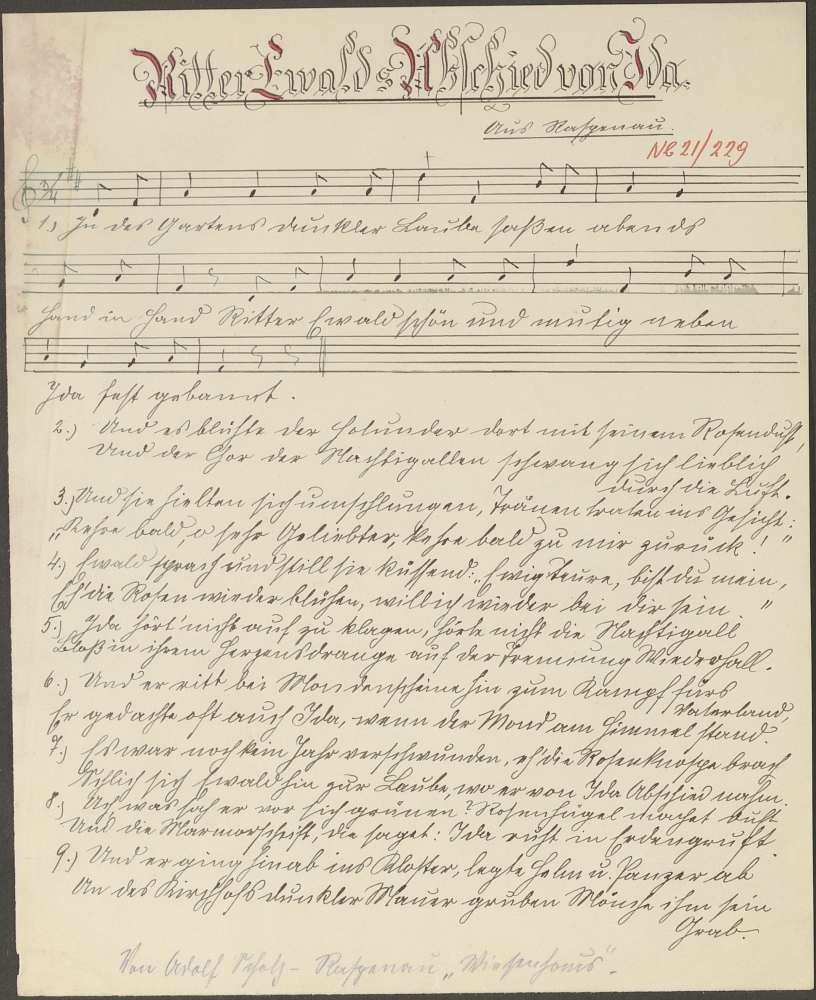 Ritter Ewalds Abschied von Ida.
Aus Raspenau.
N621/229
1.) In des Gartens dunkler Laube saßen abends
Hand in Hand Ritter Ewald schön und mutig neben
Ida fest gebannt.
2.) Und es blühte der Holunder dort mit seinem Rosenduft,
Und der Chor der Nachtigallen schwang sich lieblich
durch die Luft.
3.) Und sie hielten sich umschlungen, Tränen traten ins Gesicht:
„Kehre bald o sehr Geliebter, kehre bald zu mir zurück!"
4.) Ewald sprach und still sie küssend: „Ewig Teure, bist du mein,
Eh' die Rosen wieder blühen, will ich wieder bei dir sein."
5.) Ida hört' nicht auf zu klagen, hörte nicht die Nachtigall
Bloß in ihrem Herzensdrange auf der Trennung Wiederhall.
6.) Und er ritt bei Mondenscheine hin zum Kampf fürs
Vaterland,
Er gedachte oft auch Ida, wenn der Mond am Himmel stand.
7.) Es war noch kein Jahr verschwunden, eh' die Rosenknospe brach
Schlich sich Ewald hin zur Laube, wo er von Ida Abschied nahm.
8.) Ach was sah er vor sich grünen? Rosenhügel Duft
Und die Marmorschrift, die saget: Ida ruht in Erdengruft.
9.) Und er ging hinab ins Kloster, legte Helm u. Panzer ab
An des Kirchhofs dunkler Mauer gruben Mönche ihm sein
Grab.
Von Adolf Scholz - Raspenau „Wiesenhaus".